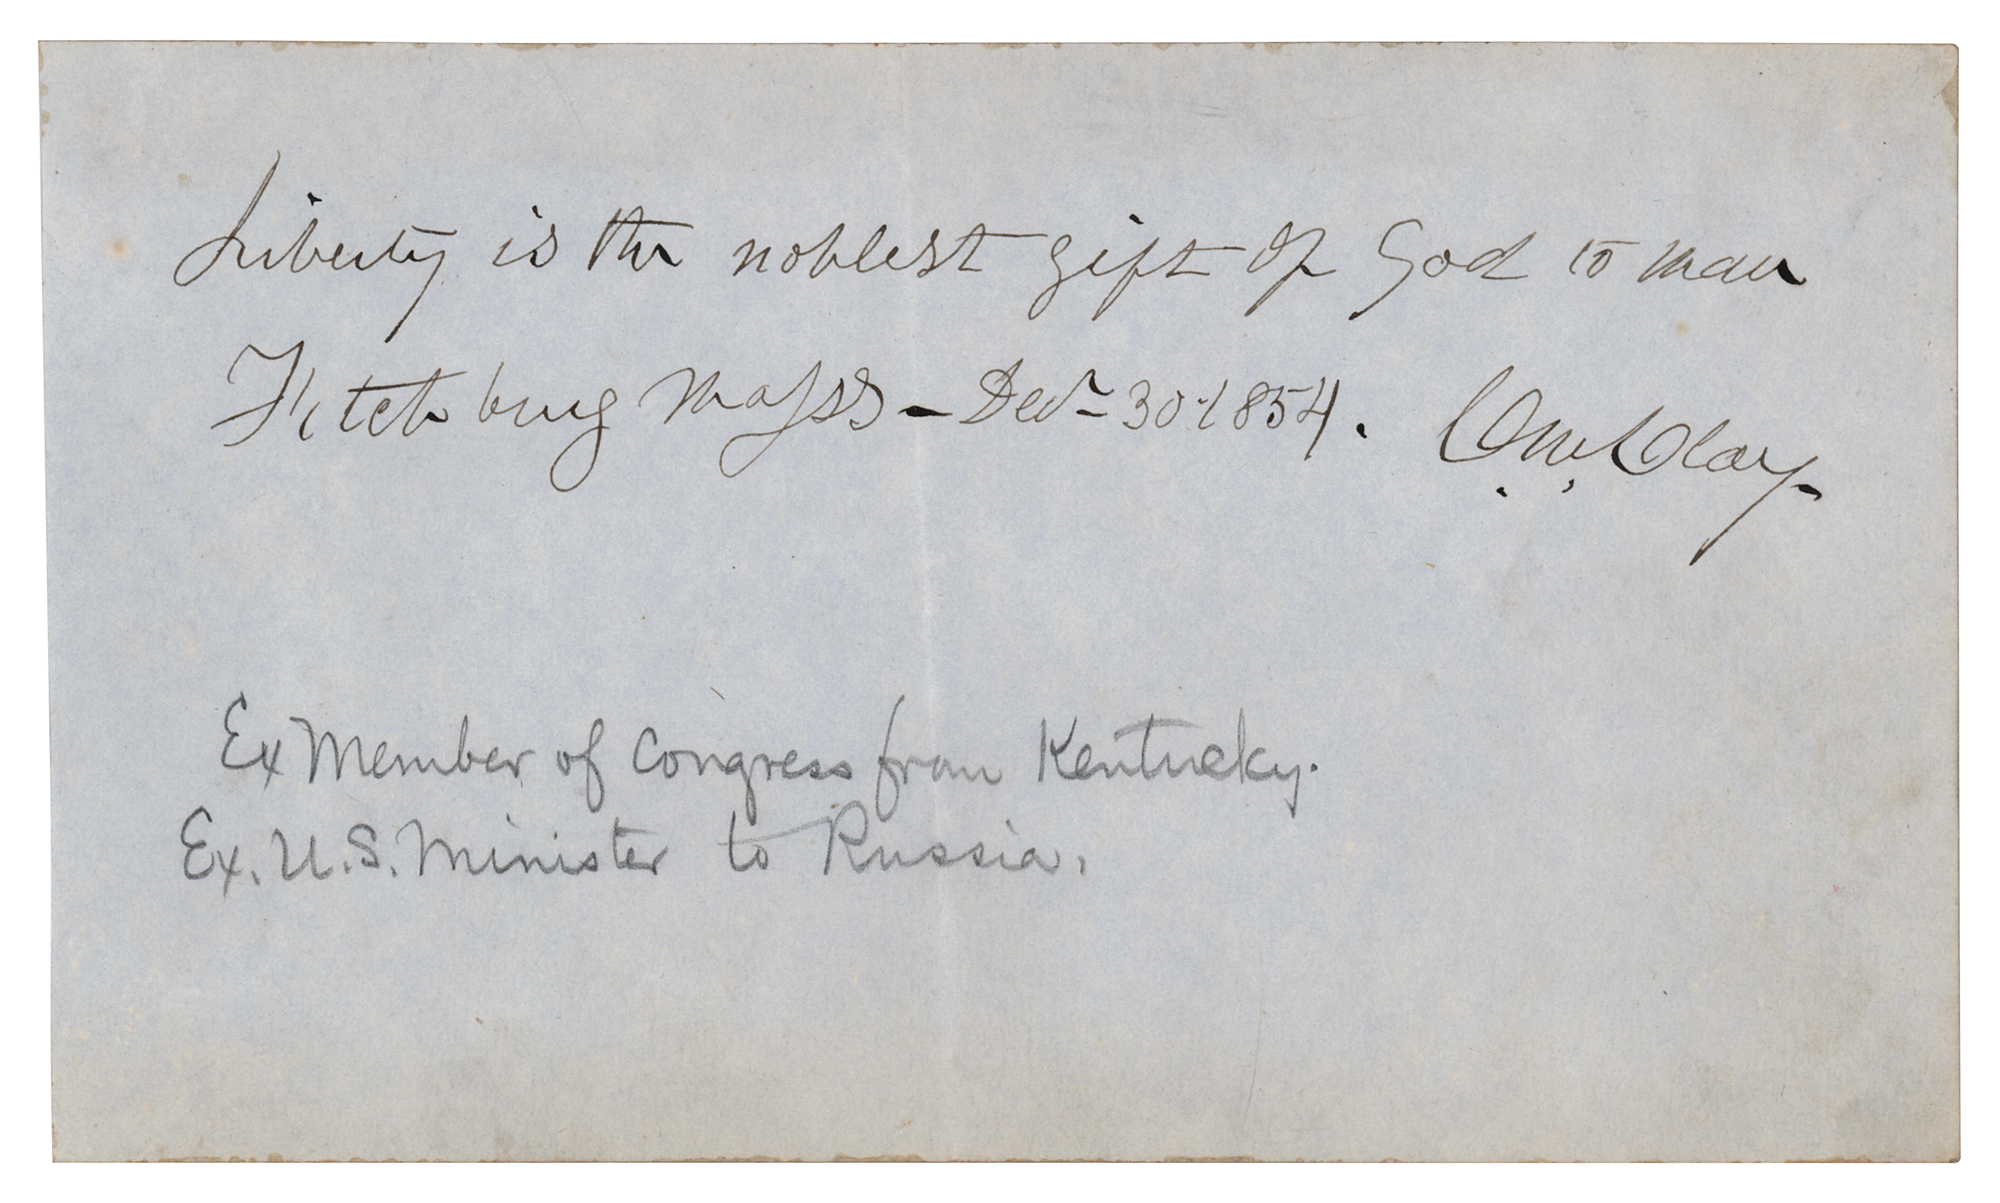 Liberty is the noblest gift of God to man
Fitchburg Mass – Decr 30. 1854. C. M. Clay.
Ex Member of Congress from Kentucky.
Ex. U.S. Minister to Russia.